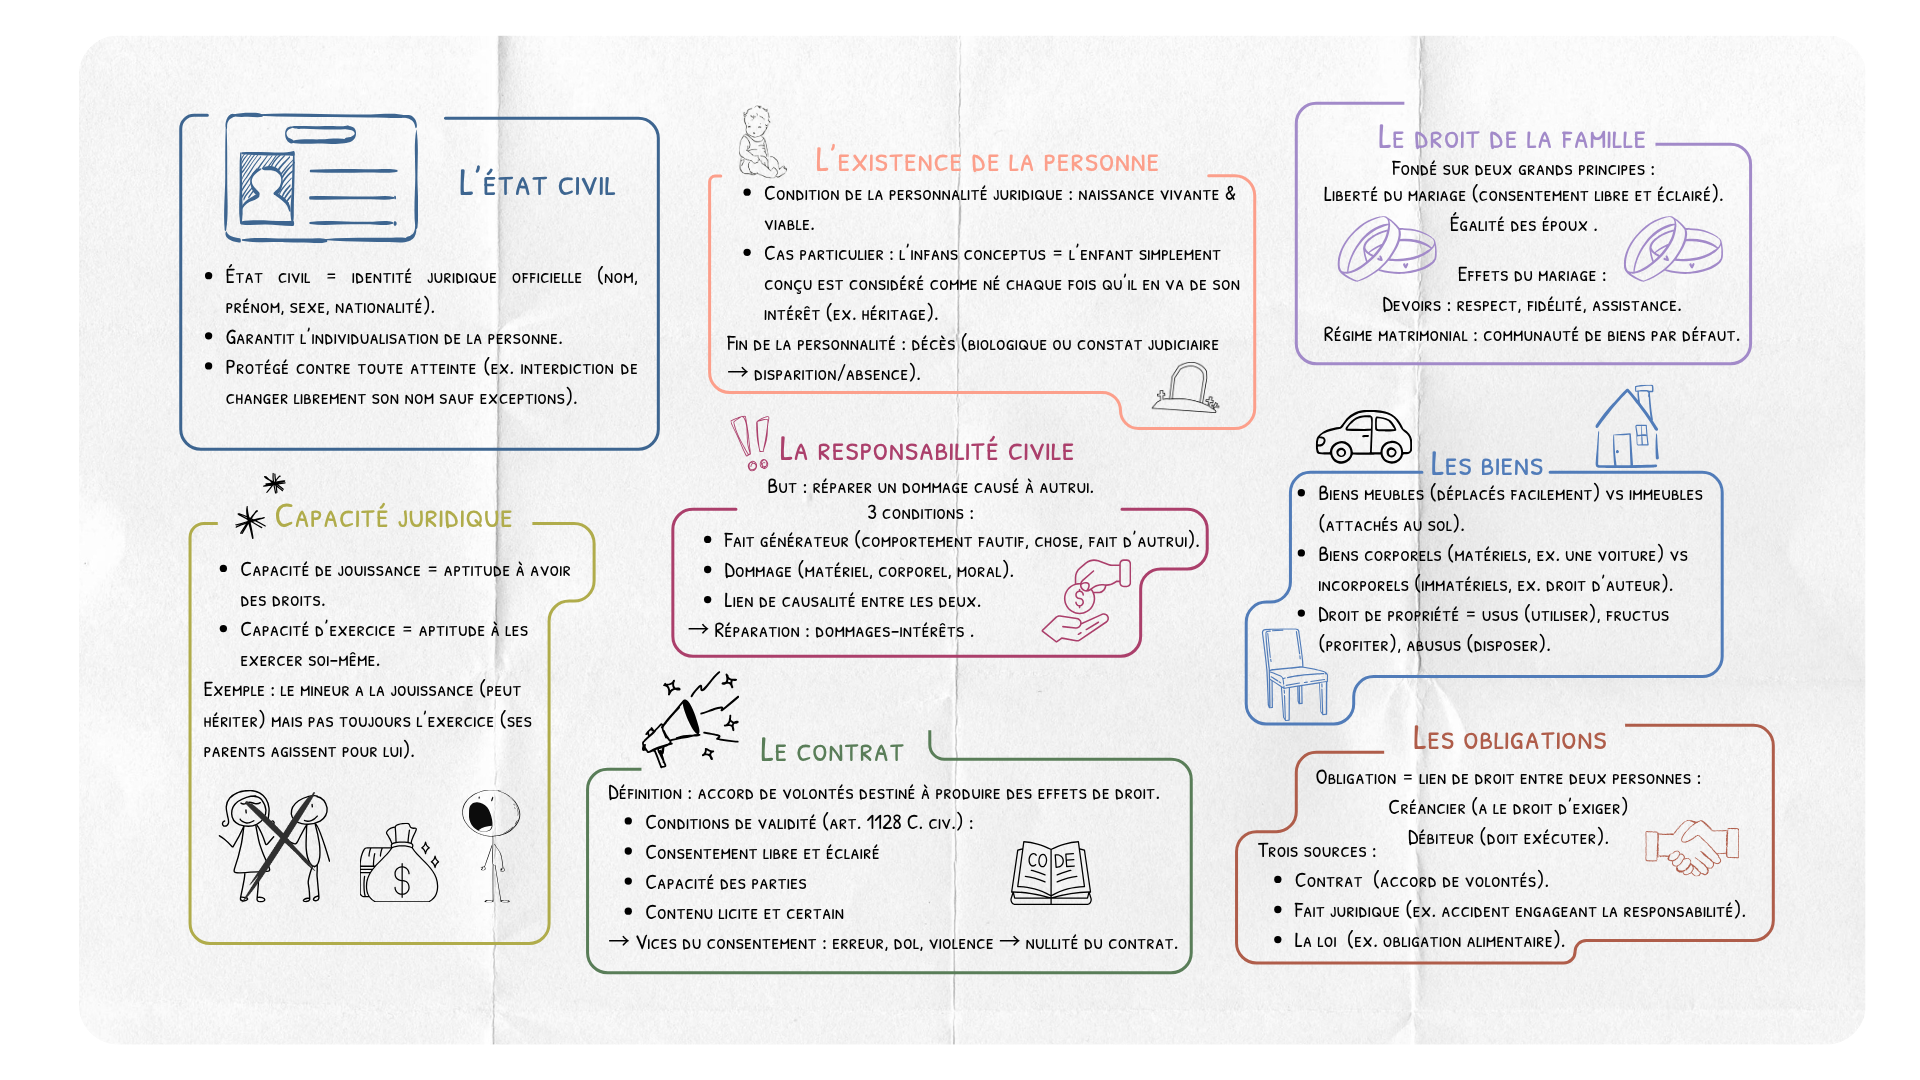 L'état civil
• État civil = identité juridique officielle (nom,
prénom, sexe, nationalité).
• Garantit l'individualisation de la personne.
• Protégé contre toute atteinte (ex. interdiction de
changer librement son nom sauf exceptions).
Capacité juridique
• Capacité de jouissance = aptitude à avoir
des droits.
• Capacité d'exercice = aptitude à les
exercer soi-même.
Exemple : le mineur a la jouissance (peut
hériter) mais pas toujours l'exercice (ses
parents agissent pour lui).
$
L'existence de la personne
• Condition de la personnalité juridique : naissance vivante &
viable.
• Cas particulier : l'infans conceptus = l'enfant simplement
conçu est considéré comme né chaque fois qu'il en va de son
intérêt (ex. héritage).
Fin de la personnalité : décès (biologique ou constat judiciaire
→ disparition/absence).
La responsabilité civile
But : réparer un dommage causé à autrui.
3 conditions :
• Fait générateur (comportement fautif, chose, fait d'autrui).
• Dommage (matériel, corporel, moral).
• Lien de causalité entre les deux.
→ Réparation : dommages-intérêts .
$
Le contrat
Définition : accord de volontés destiné à produire des effets de droit.
• Conditions de validité (art. 1128 C. civ.) :
• Consentement libre et éclairé
• Capacité des parties
• Contenu licite et certain
→ Vices du consentement : erreur, dol, violence → nullité du contrat.
CO DE
Le droit de la famille
Fondé sur deux grands principes :
Liberté du mariage (consentement libre et éclairé).
Égalité des époux .
Effets du mariage :
Devoirs : respect, fidélité, assistance.
Régime matrimonial : communauté de biens par défaut.
Les biens
• Biens meubles (déplacés facilement) vs immeubles
(attachés au sol).
• Biens corporels (matériels, ex. une voiture) vs
incorporels (immatériels, ex. droit d'auteur).
• Droit de propriété = usus (utiliser), fructus
(profiter), abusus (disposer).
Les obligations
Obligation = lien de droit entre deux personnes :
Créancier (a le droit d'exiger)
Débiteur (doit exécuter).
Trois sources :
• Contrat (accord de volontés).
• Fait juridique (ex. accident engageant la responsabilité).
• La loi (ex. obligation alimentaire).